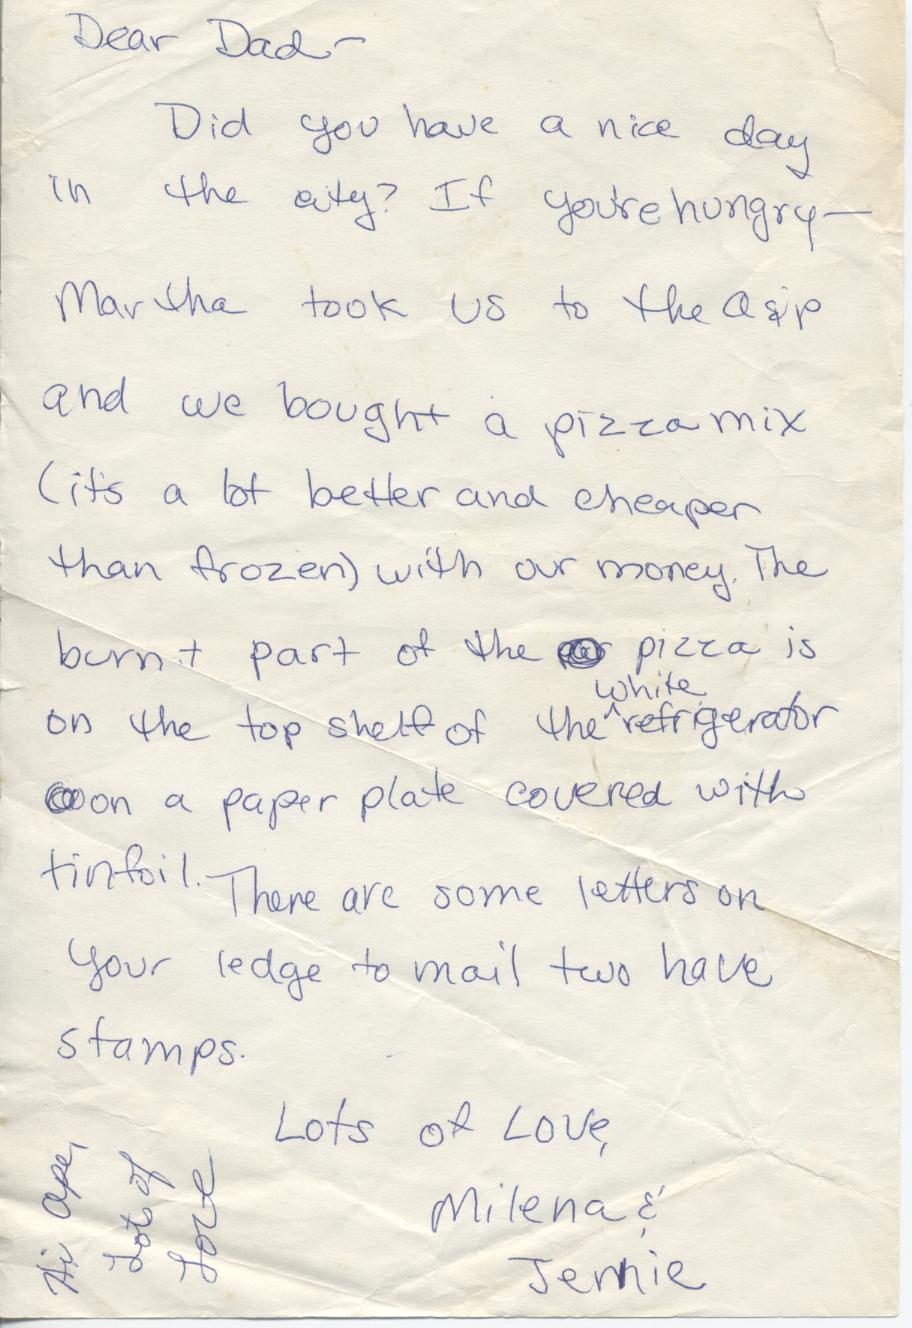 Dear Dad-
Did you have a nice day
in the city? If you're hungry—
Martha took us to the A&P
and we bought a pizza mix
(it's a lot better and cheaper
than frozen) with our money. The
burnt part of the pizza is
white
on the top shelf of the ^ refrigerator
on a paper plate covered with
tinfoil. There are some letters on
your ledge to mail two have
stamps.
Lots of Love,
Milena &
Jennie
Hi Ope,
Lot of
Love